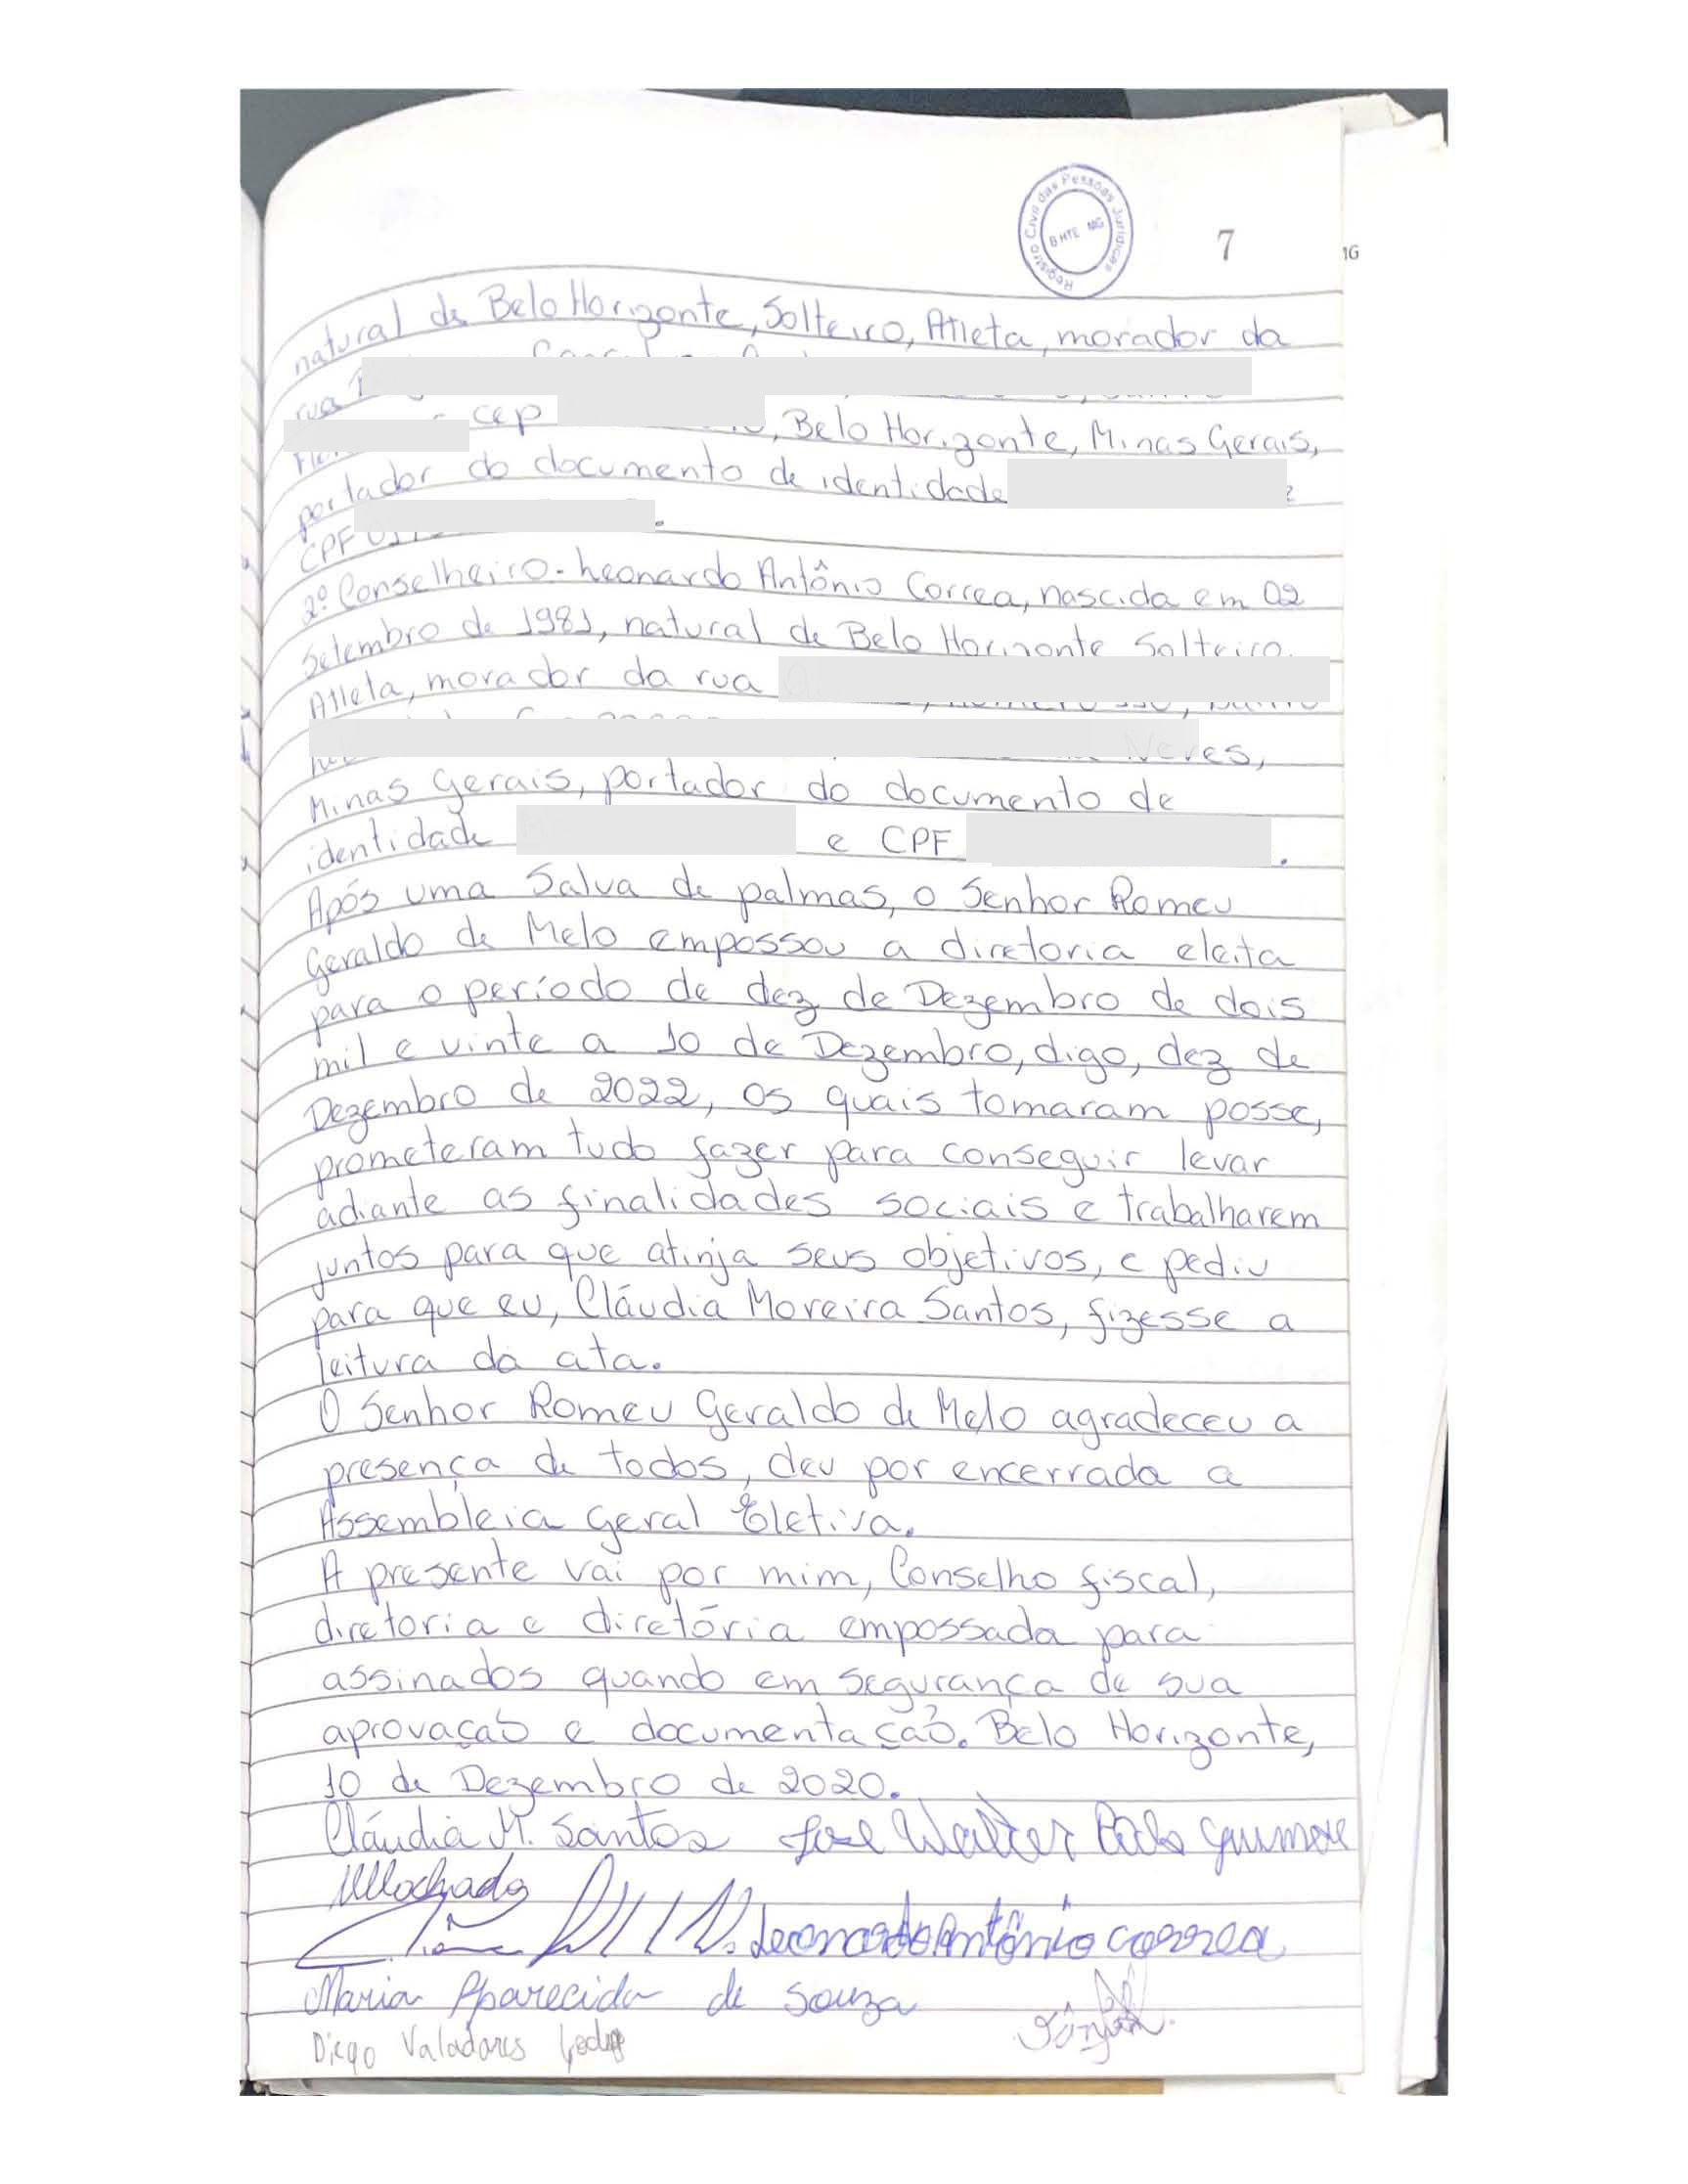 Registro Civil das Pessoas Jurídicas
BHTE MG
7
MG
natural de Belo Horizonte, Solteiro, Atleta, morador da
rua
cep , Belo Horizonte, Minas Gerais,
portador do documento de identidade e
CPF
2º Conselheiro - Leonardo Antônio Correa, nascida em 02
Setembro de 1981, natural de Belo Horizonte Solteiro,
Atleta, morador da rua
Neves,
Minas Gerais, portador do documento de
identidade e CPF .
Após uma Salva de palmas, o Senhor Romeu
Geraldo de Melo empossou a diretoria eleita
para o período de dez de Dezembro de dois
mil e vinte a 10 de Dezembro, digo, dez de
Dezembro de 2022, os quais tomaram posse,
prometeram tudo fazer para conseguir levar
adiante as finalidades sociais e trabalharem
juntos para que atinja seus objetivos, e pediu
para que eu, Cláudia Moreira Santos, fizesse a
leitura da ata.
O Senhor Romeu Geraldo de Melo agradeceu a
presença de todos, deu por encerrada a
Assembléia Geral Eletiva.
A presente vai por mim, Conselho fiscal,
diretoria e diretória empossada para
assinados quando em segurança de sua
aprovação e documentação. Belo Horizonte,
10 de Dezembro de 2020.
Cláudia M. Santos Jose Walter
Machado
Leonardo Antônio Correa
Maria Aparecida de Souza
Diego Valadares